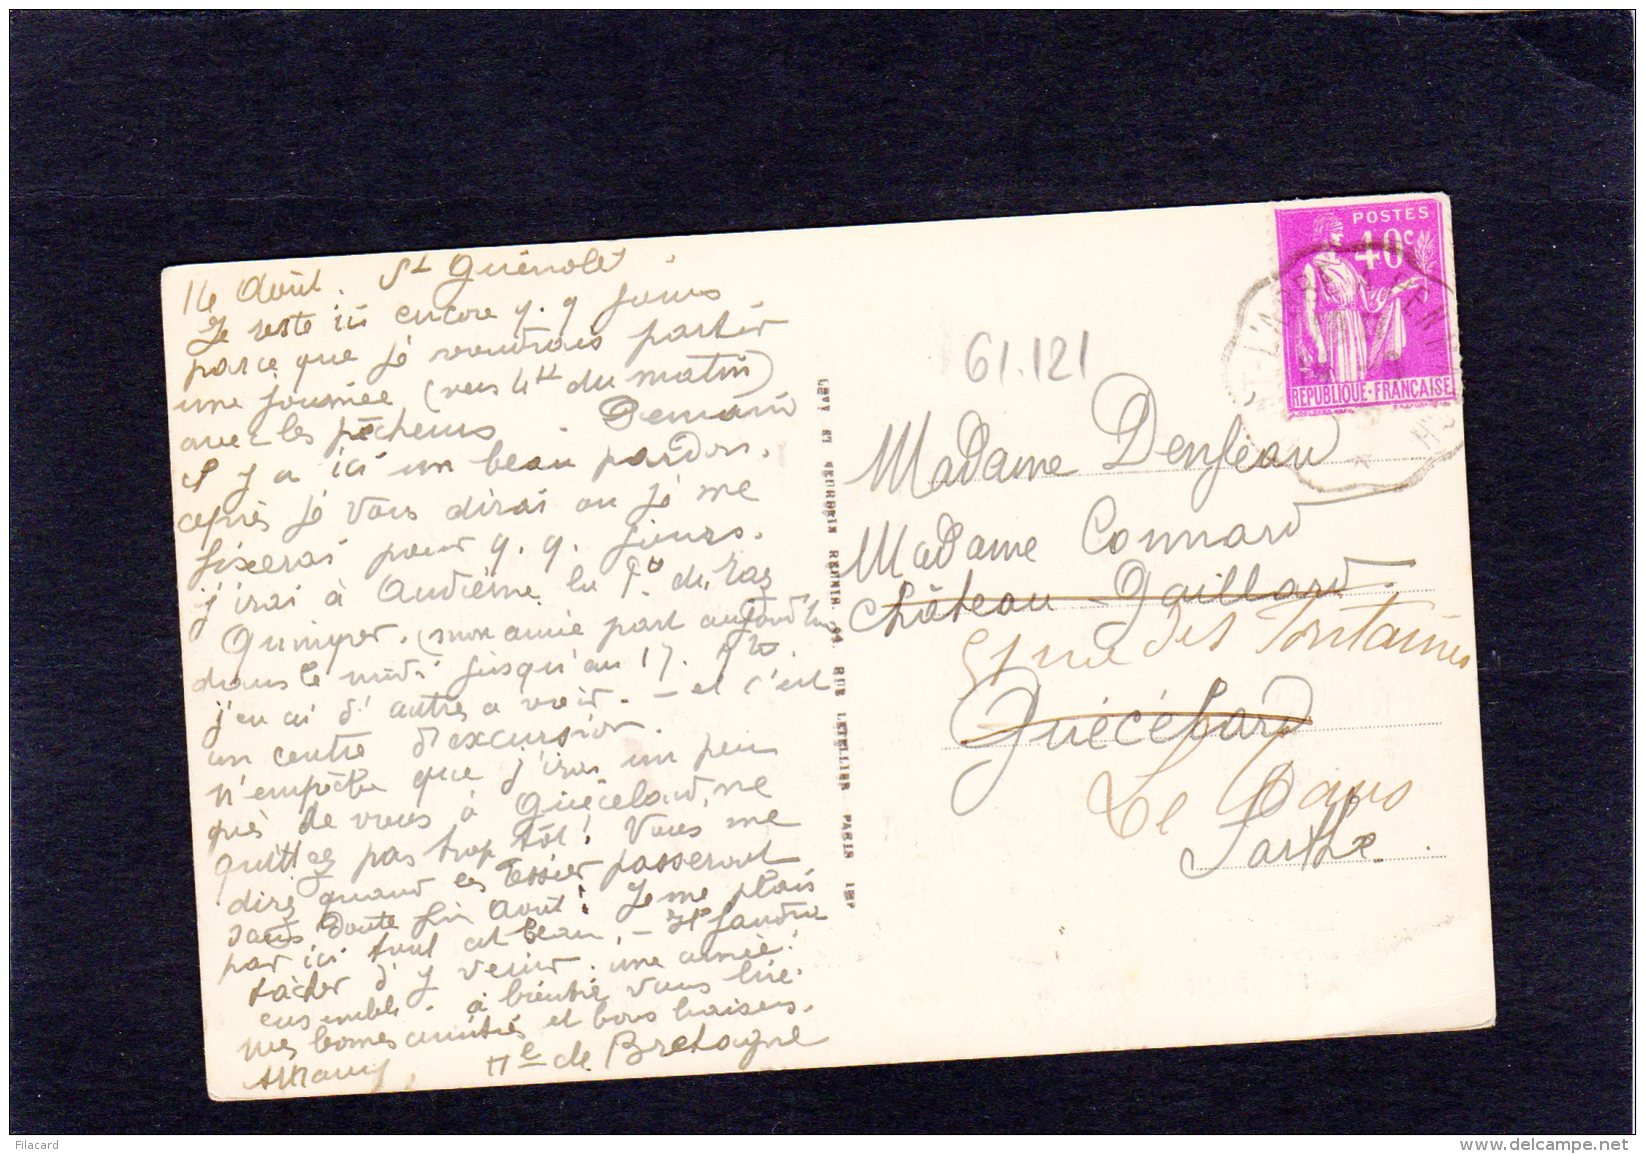 14 Août. St Guénolé
Je reste ici encore q. q jours
parce que je voudrais partir
une journée (vers 4h du matin)
avec les pêcheurs. Demain
il y a ici un beau pardon,
après je vous dirai où je me
fixerai pour q. q. jours.
j'irai à Audierne la Pte du Raz
Quimper. (mon amie part aujourd'hui
dans le midi jusqu'au 17.
j'en ai d'autres a voir. - et c'est
un centre d'excursion.
n'empêche que j'irai un peu
près de vous à Guécélard, ne
quittez pas trop tôt! Vous me
direz quand les Tessier passeront
sans doute fin Août! Je me plais
par ici tout est beau, - Il faudra
tâcher d'y venir une année!
ensemble. à bientôt vous lire
mes bonnes amitiés et bons baisers.
Hel de Bretagne
LEVY ET NEURDEIN REUNIS 44. RUE LETELLIER PARIS IMP
POSTES
40c
REPUBLIQUE-FRANÇAISE
61.121
Madame Denjean
Madame Connard
Château-Gaillard
51 rue des Fontaines
Guécélard
Le Mans
Sarthe
Filacard
delcampe.net